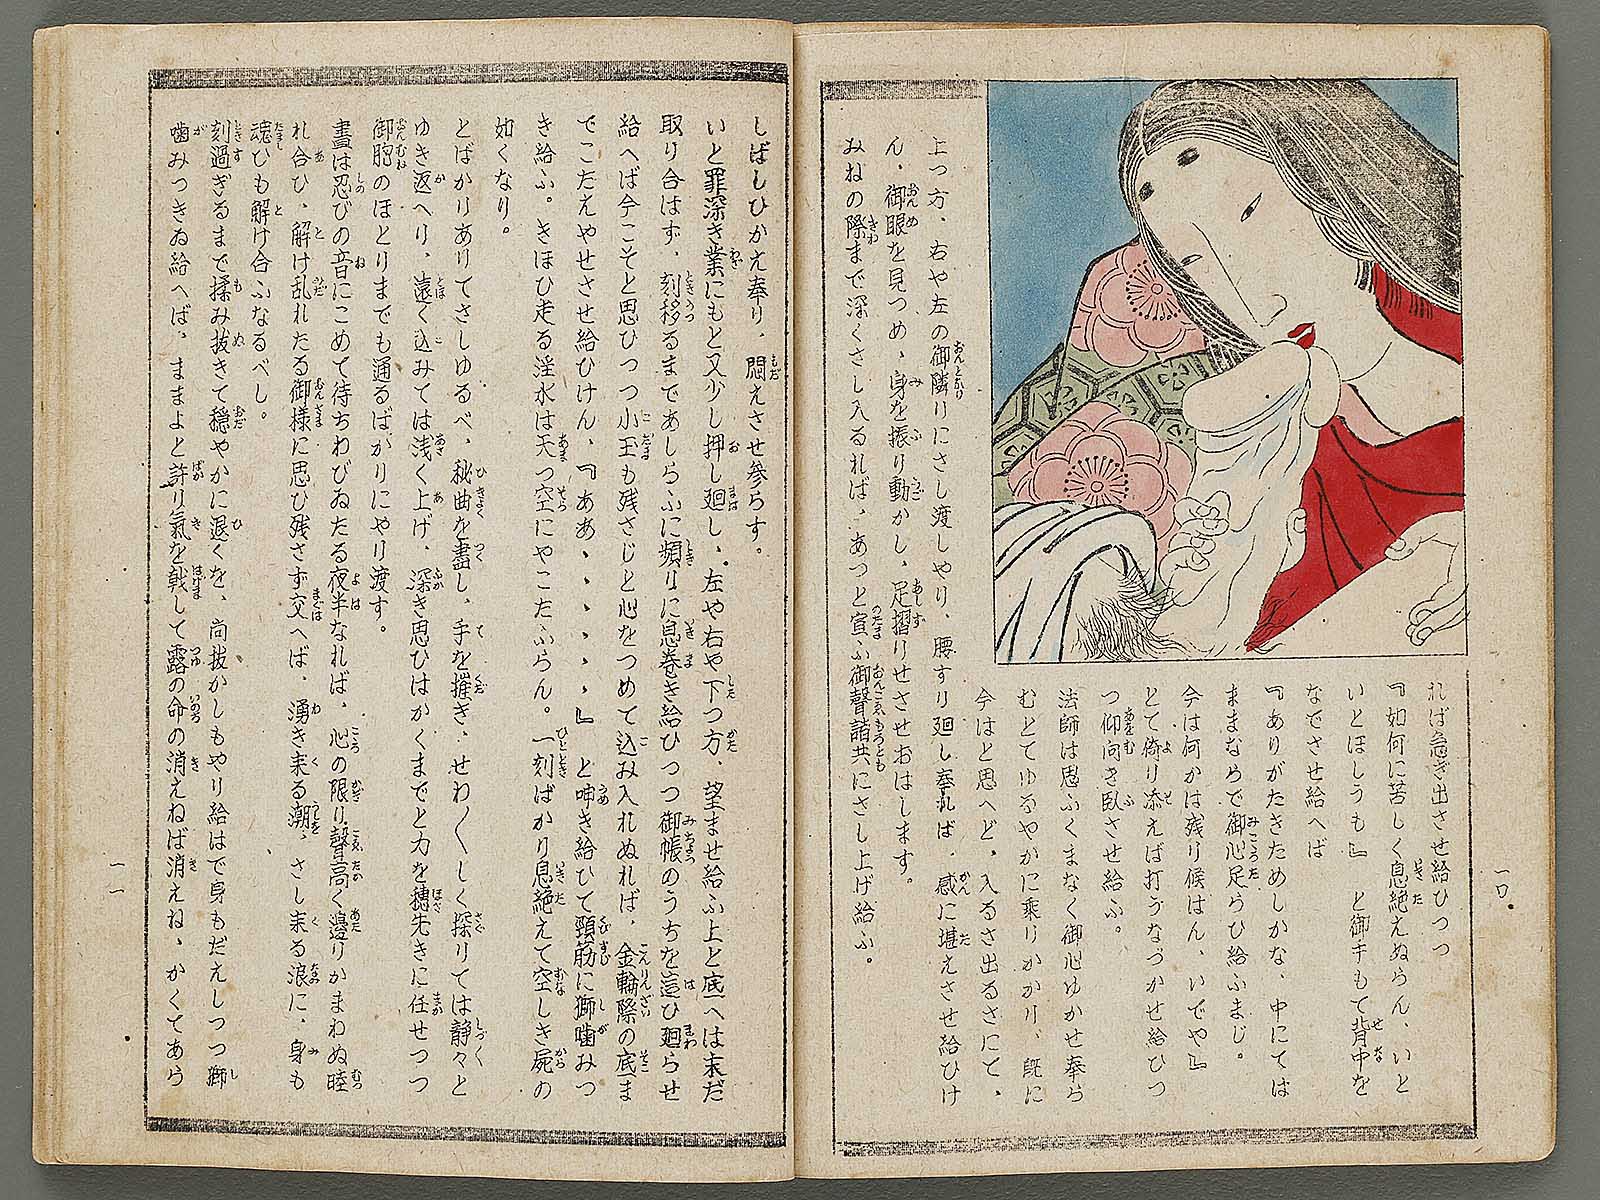 れば急ぎ出させ給ひつつ
『如何に苦しく息絶えぬらん、いと
いとほしうも』 と御手もて背中を
なでさせ給へば
『ありがたきためしかな、中にては
ままならで御心足らひ給ふまじ。
今は何かは残り候はん、いでや』
とて倚り添えば打うなづかせ給ひつ
つ仰向き臥させ給ふ。
法師は思ふくまなく御心ゆかせ奉ら
むとてゆるやかに乗りかかり、既に
今はと思へど、入るさ出るさにて、
上つ方、右や左の御隣りにさし渡しやり、腰すり廻し奉れば、感に堪えさせ給ひけ
ん、御眼を見つめ、身を振り動かし、足摺りせさせおはします。
みねの際まで深くさし入るれば、あつと宣ふ御聲諸共にさし上げ給ふ。
一〇
しばしひかえ奉り、悶えさせ参らす。
いと罪深き業にもと又少し押し廻し、左や右や下つ方、望ませ給ふ上と底へは末だ
取り合はず、刻移るまであしらふに頻りに息巻き給ひつつ御帳のうちを這ひ廻らせ
給へば今こそと思ひつつ小玉も残さじと心をつめて込み入れぬれば、金輪際の底ま
でこたえやせさせ給ひけん、『ああ、、、、、』 と呻き給ひて頸筋に獅噛みつ
き給ふ。きほひ走る淫水は天つ空にやこたふらん。一刻ばかり息絶えて空しき屍の
如くなり。
とばかりありてさしゆるべ、秘曲を盡し、手を摧き、せわ〱しく探りては静々と
ゆき返へり、遠く込みては浅く上げ、深き思ひはかくまでと力を穂先きに任せつつ
御胸のほとりまでも通るばかりにやり渡す。
晝は忍びの音にこめて待ちわびゐたる夜半なれば、心の限り聲高く邊りかまわぬ睦
れ合ひ、解け乱れたる御様に思ひ残さず交へば、湧き来る潮、さし来る浪に、身も
魂ひも解け合ふなるべし。
刻過ぎるまで揉み抜きて穏やかに退くを、尚抜かしもやり給はで身もだえしつつ獅
噛みつきゐ給へば、ままよと許り氣を戟して露の命の消えねば消えね、かくてあら
一一